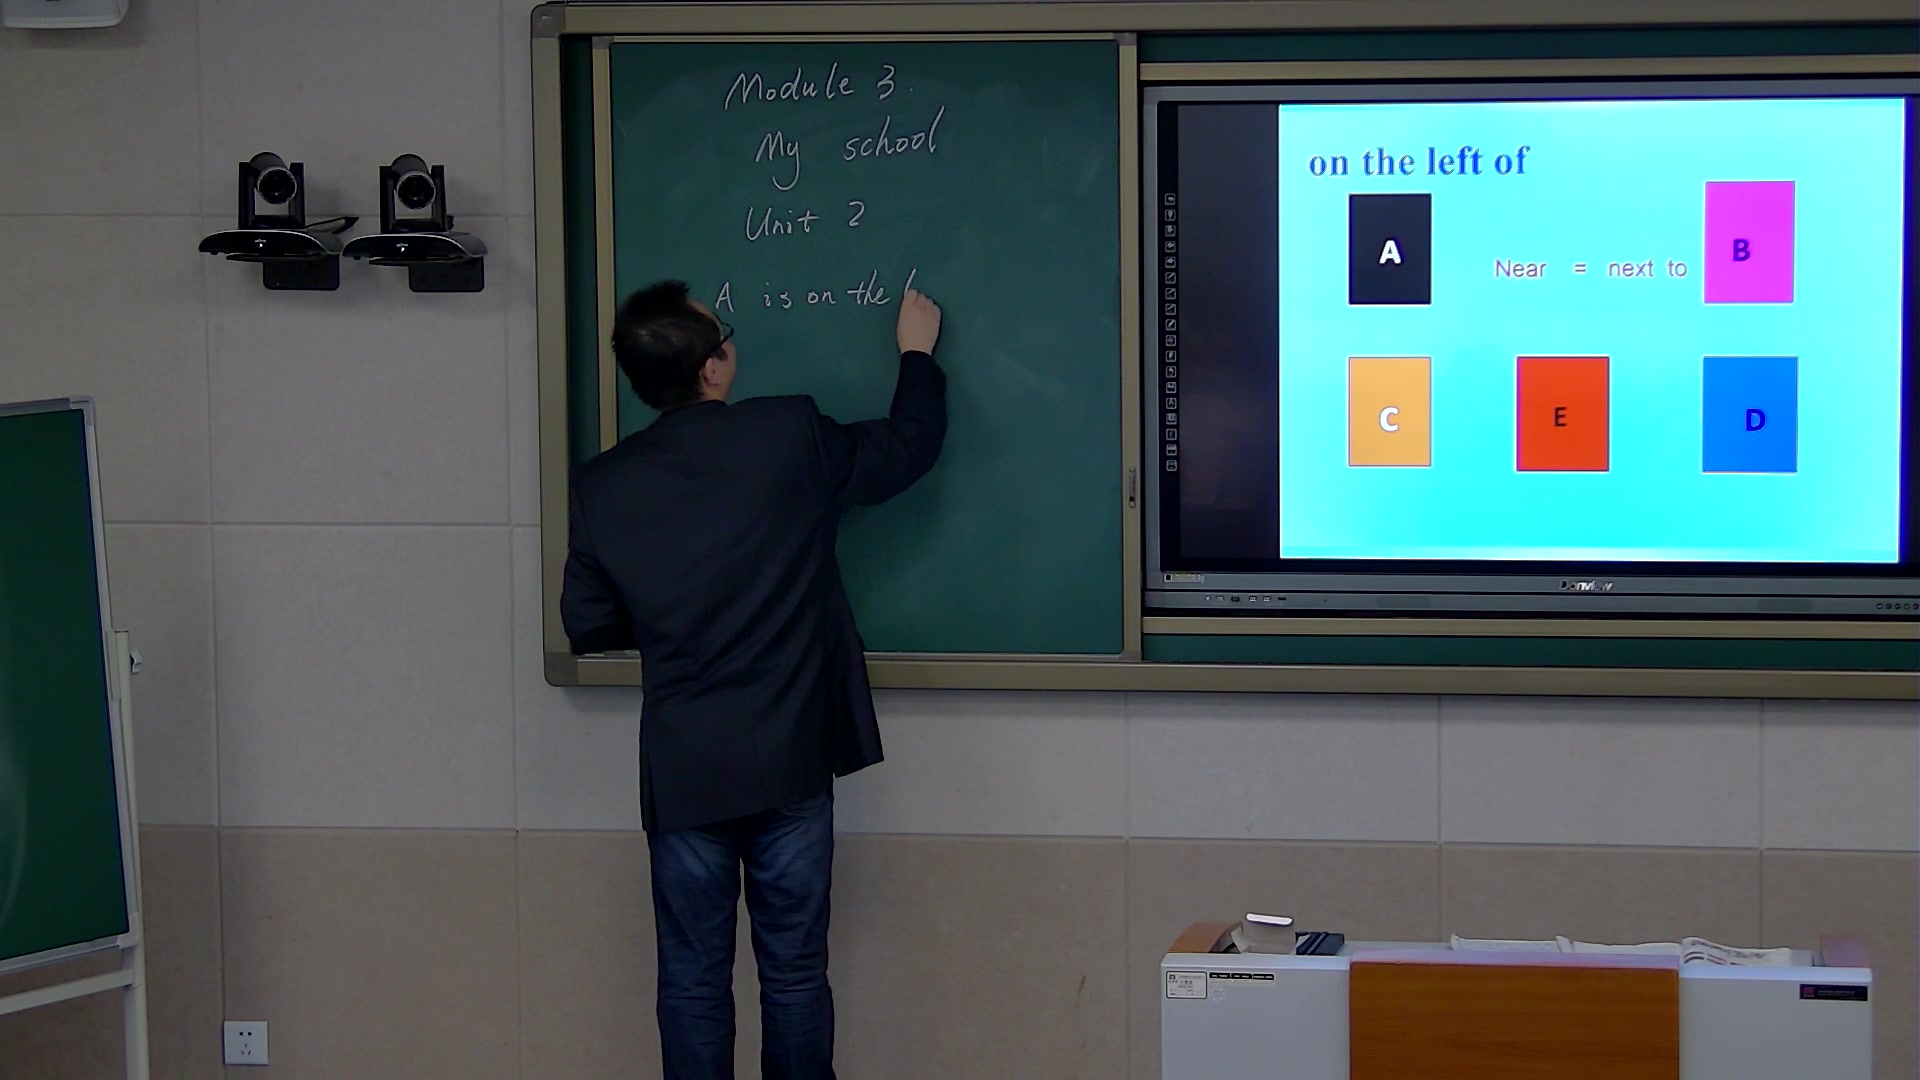 Module 3.
My school
Unit 2
A is on the l
on the left of
A
B
Near = next to
C
E
D
Donview